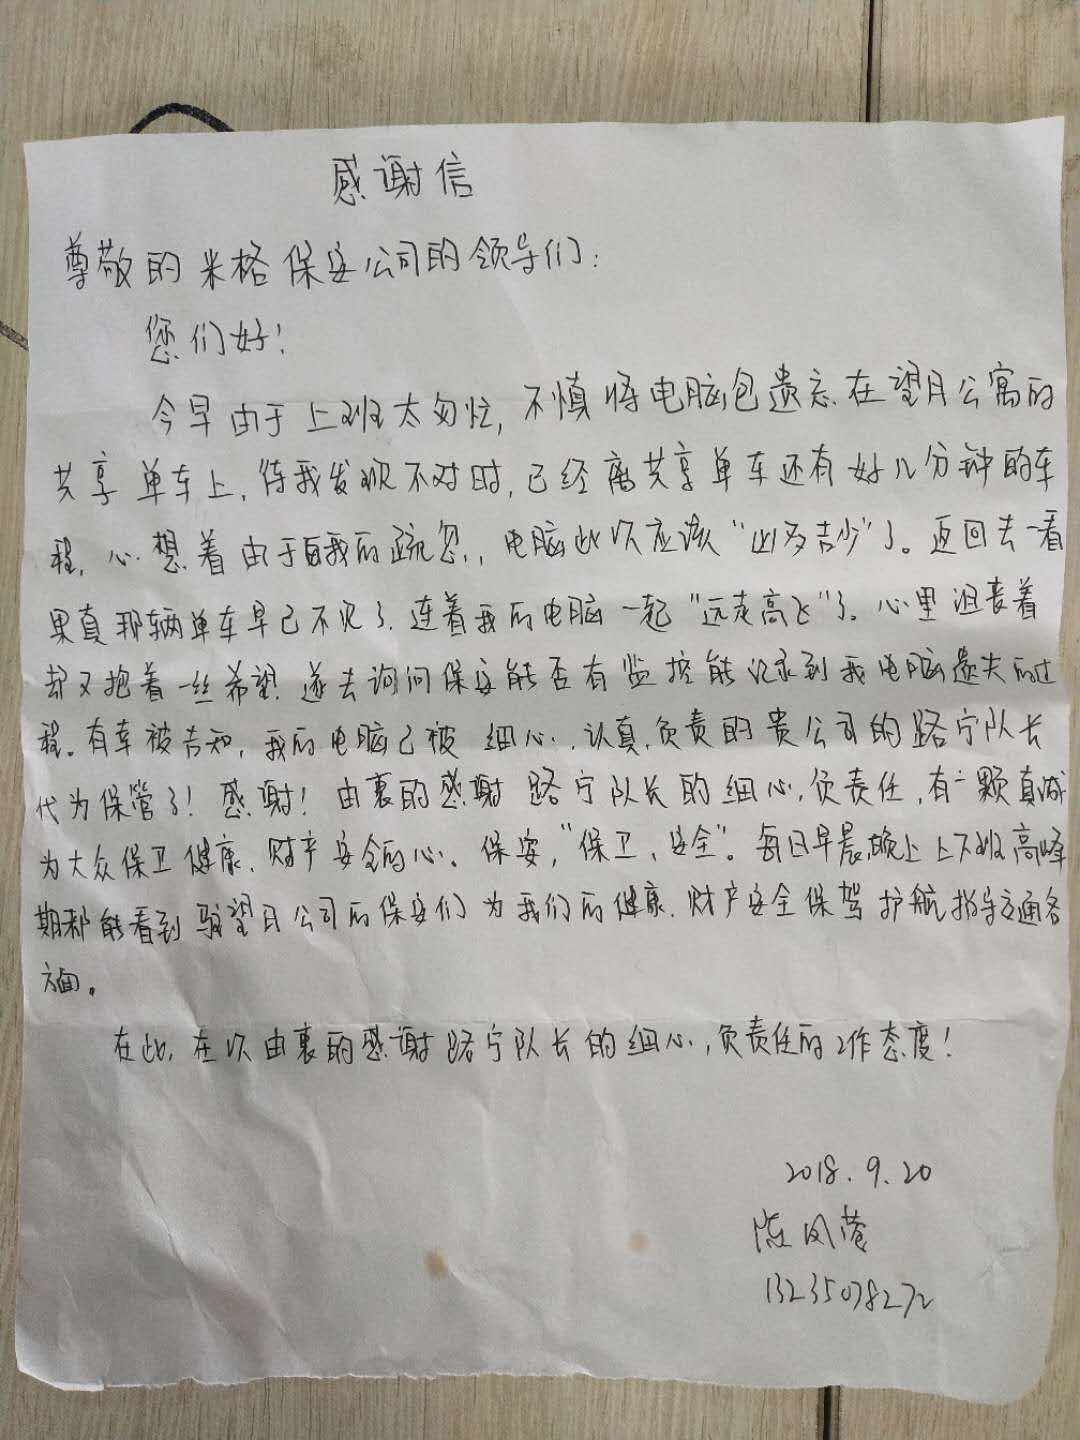 感谢信
尊敬的米格保安公司的领导们：
您们好！
今早由于上班太匆忙，不慎将电脑包遗忘在望月公寓的
共享单车上，待我发现不对时，已经离共享单车还有好几分钟的车
程，心想着由于自我的疏忽，电脑此次应该“凶多吉少”了。返回去一看
果真那辆单车早已不见了，连着我的电脑一起“远走高飞”了。心里沮丧着
却又抱着一丝希望，遂去询问保安能否有监控能记录到我电脑遗失的过
程。有幸被告知，我的电脑已被细心、认真、负责的贵公司的路宁队长
代为保管了！感谢！由衷的感谢路宁队长的细心，负责任，有一颗真诚
为大众保卫健康、财产安全的心。保安，“保卫、安全”。每日早晨，晚上上下班高峰
期都能看到驻望月公司的保安们为我们的健康、财产安全保驾护航指导交通各
方面。
在此，在次由衷的感谢路宁队长的细心，负责任的工作态度！
2018.9.20
陈凤
13235078272